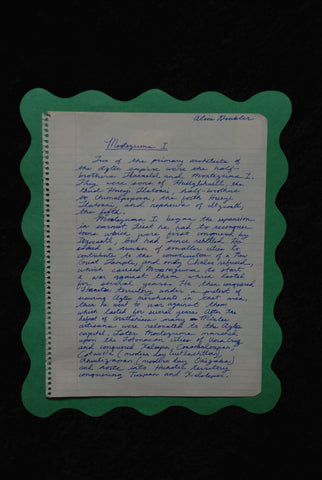 Alice Gonbler
Moctezuma I
Two of the primary architects of
the Aztec empire were the half-
brothers Tlacaelel and Moctezuma I.
They were sons of Huitzilihuitl, the
third Hueyi Tlatoani, half-brothers
to Chimalpopoca, the forth Hueyi
Tlatoani, and nephews of Itzcoatl,
the fifth.
Moctezuma I began the expansion
in earnest. First he had to reconquer
towns which were first conquered by
Itzcoatl, but had since rebelled. He
asked a number of smaller cities to
contribute to the construction of a New
Great Temple, and only Chalco refused,
which caused Moctezuma to start
a war against them which lasted
for several years. He then conquered
Huastec territory under a pretext of
securing Aztec merchants in that area,
then he went to war against them
which lasted for several years. After the
defeat of many Mixtec
artisans were relocated to the Aztec
capital. Later Moctezuma marched
upon the Totonacan cities of Vera Cruz
and conquered Xalapa, Cosamaloapan,
Cotaxtla (modern day Cuitlachtlan),
Ahuilizapan (modern day Orizaba)
and north into Huastec territory
conquering Tuxpan and Xilotepec.